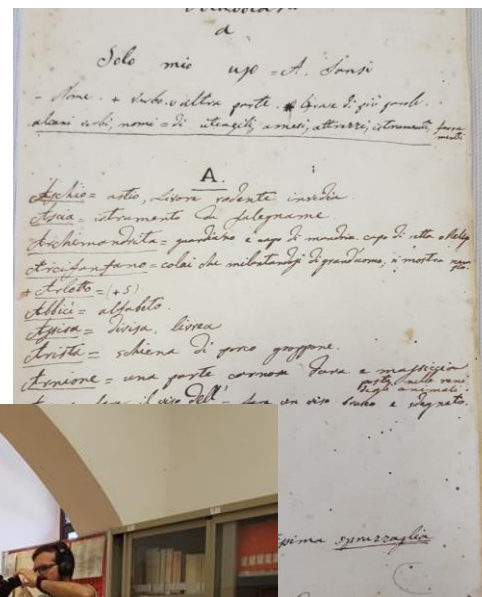 a
Solo mio uso = A. Sansi
- Nome. + verbo. o altra parte. * Frase di più parole.
alcuni verbi, nomi = di utensili, arnesi, attrezzi, istrumenti,
A.
Aschio = astio, livore rodente invidia
Ascia = istramento di falegname.
Archimandrita = guardiano e capo di mandria. capo di setta o Relig
Arcifanfano = colui che millantandosi di granduomo, si mostra
+ Arlotto = (+ S)
Abbici = alfabeto.
Assisa = divisa, livrea
Arista = schiena di porco groppone.
Arnione = una parte carnosa dura e massiccia
posta nelle reni
degli animali.
il viso dell' = fare un viso brusco e sdegnato.
sima spruzzaglia